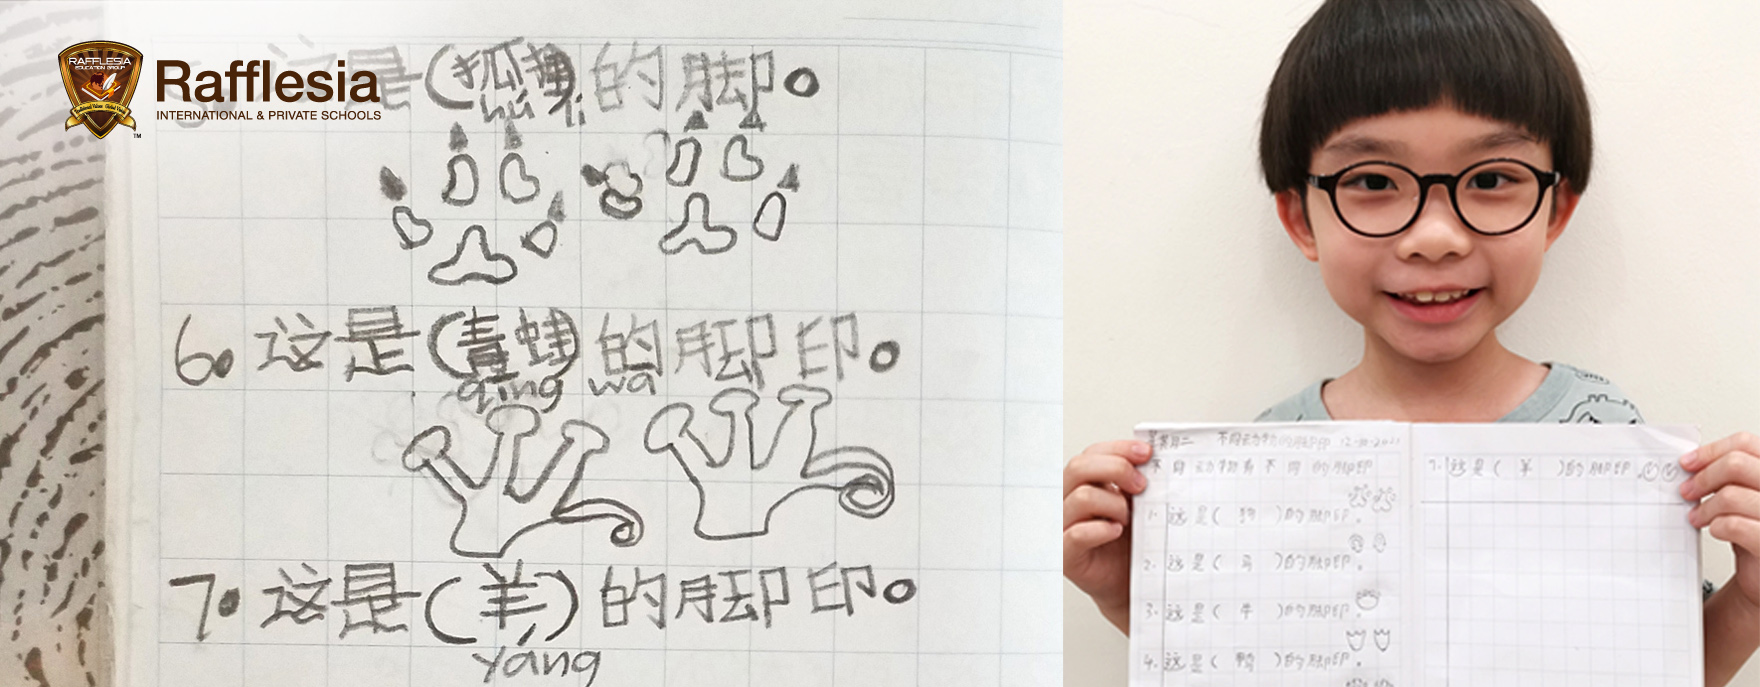 RAFFLESIA
EDUCATION GROUP
Rafflesia
INTERNATIONAL & PRIVATE SCHOOLS
TM
这是(狐狸)的脚。
hú li
6. 这是(青蛙)的脚印。
qīng wa
7. 这是(羊)的脚印。
yáng
星期二 不同动物的脚印 12-10-2021
不同动物有不同的脚印
1. 这是( 狗 )的脚印。
2. 这是( 马 )的脚印。
3. 这是( 牛 )的脚印。
4. 这是( 鸭 )的脚印。
7. 这是( 羊 )的脚印